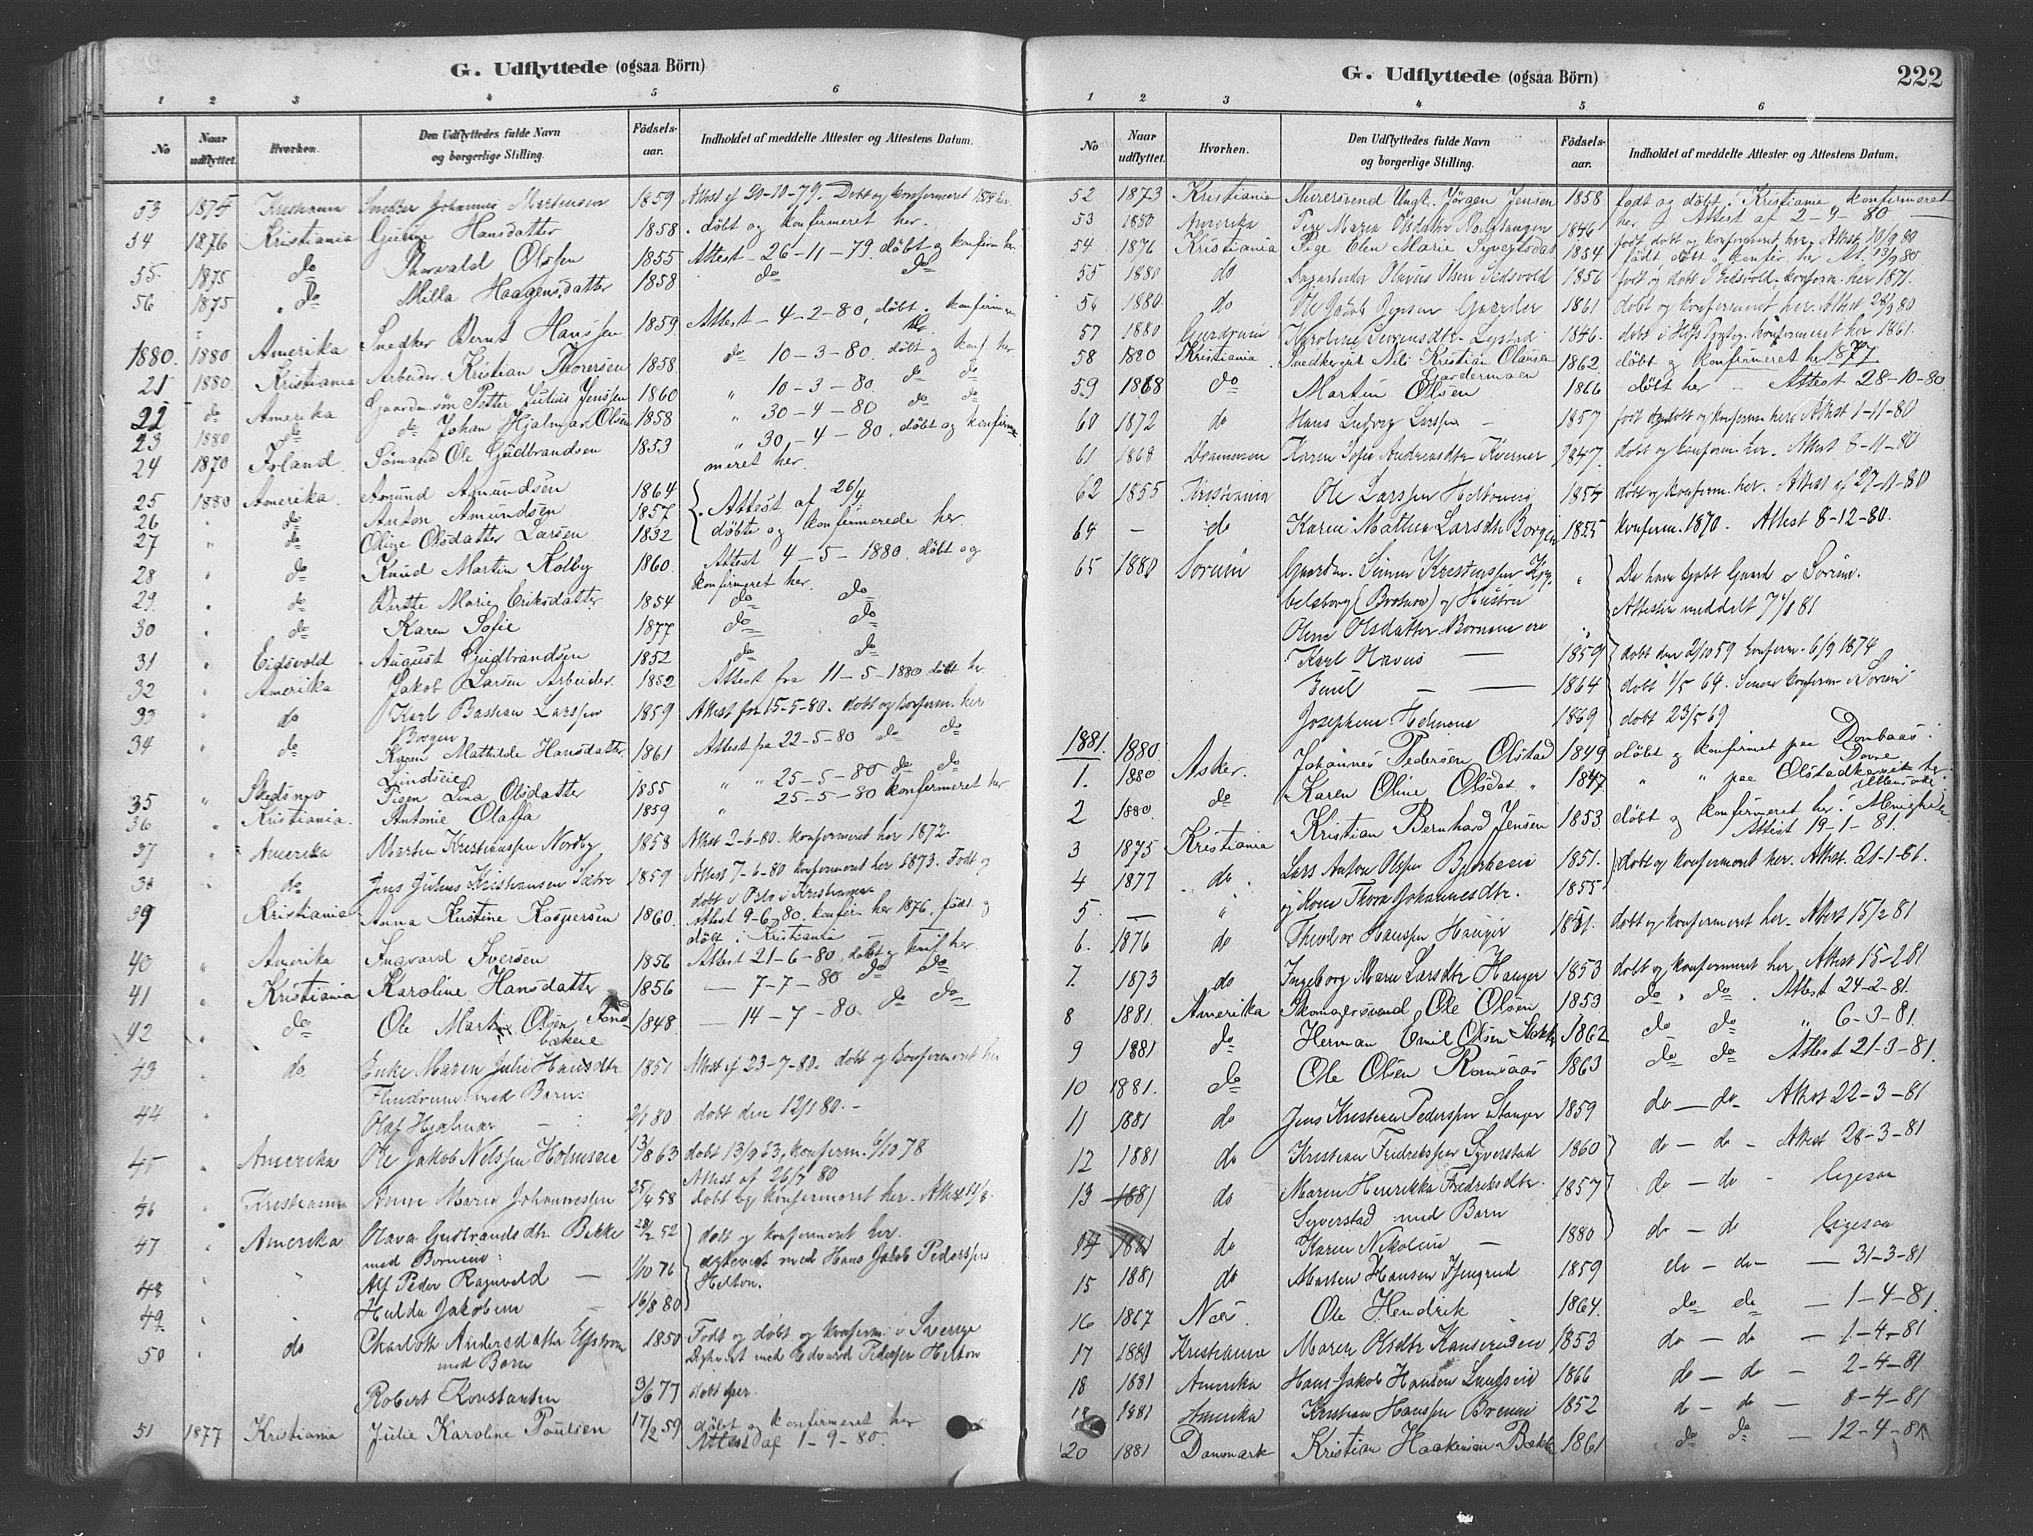 G. Udflyttede (ogsaa Börn)
1 2 3 4 5 6
No
Naar udflyttet.
Hvorhen.
Den Udflyttedes fulde Navn
og borgerlige Stilling.
Fódsels-aar.
Indholdet af meddelte Attester og Attestens Datum.
53 1875 Kristiania Snedker Johannes Mortensen 1859 Attest af 20-10-79. Döbt og konfirmeret 1874 her.
54 1876 Kristiania Hansdatter 1858 döbt og konfirmeret her.
55 1875 do Thorvald Olssen 1855 Attest 26-11-79. döbt og konfirm her
56 1875 do Milla Haagensdatter 1858 do do
Amerika Snedker Bernt Hanssen 1859 Attest 4-2-80, döbt konfirm
1880. 1880 Amerika Arbeider Kristian Thoresen 1858 do 10-3-80. döbt og konf her
21 1880 Kristiania Gaardm.sön Petter Julius Jenssen 1860 " 10-3-80 do do
22 do Amerika do Johan Hjalmar Olsen 1858 " 30-4-80 do do
23 1880 do
24 1870 Irland. Sömand Ole Gudbrandsen 1853 " 30-4-80. döbt og konfir-
meret her.
25 1880 Amerika. Amund Amundsen 1864 Attest af 26/4
26 " do Anton Amundsen 1857 döbte og konfirmerede her.
27 " do Oline Olsdatter Larsen 1832
28 " do Knud Martin Kolby 1860. Attest 4-5-1880. döbt og
konfirmeret her.
29. " do Berte Marie Eriksdatter 1854 do do
30 " do Karen Sofie 1877 do do
31 " Eidsvold August Gudbrandsen 1852 do do
32 " Amerika Jakob Larsen Arbeider 1852 Attest fra 11-5-1880 döbt her
33 " do Karl Bastian Larssen 1859 Attest fra 15-5-80. döbt og konfirm. her
Borgen
34 " do Karen Mathilde Hansdatter 1861 Attest fra 22-5-80 do do
Lundseie
35 " Skedsmo Pigen Lina Olsdatter 1855 " 25-5-80 do do
36 " Kristiania. Antonie Olaffa 1859 " 25-5-80 konfirmeret her
37 " Amerika Morten Kristianssen Nordby 1858 Attest 2-6-80. konfirmeret her 1872.
38 " do Jens Julius Kristiansen Sætre 1859 Attest 7-6-80 konfirmeret her 1873. Födt og
döbt i Oslo i Kristiania
39 " Kristiania Anna Kristine Kaspersen 1860. Attest 9-6-80. konfir. her 1876, födt og
döbt i Kristiania
40 " Amerika Ingvard Iversen 1856 Attest 21-6-80, döbt og konf her.
41 " Kristiania Karoline Hansdatter 1856 — 7-7-80 do do
42 " do Ole Martin Olsen Sand- 1848 — 14-7-80 do do
bækeie
43 " do Enke Maren Julie Hansdtr 1851 Attest af 23-7-80. döbt og konfirmeret her
med Barn:
44 " Olaf Hjalmar 80 döbt den 12/1 80.-
45 " Amerika Ole Jakob Nilssen Holmseie 63 döbt 13/9 63, konfirm. 6/10 78
Attest af 26/7 80
46 " Kristiania Anne Marie Johannessen 25/4 58 döbt og konfirmeret her. Attest
47 " Amerika Olava Gudbrandsdtr Bakke 28/2 52 döbt og konfirmeret her.
med Börnene: ægteviet med Hans Jakob Pederssen
48 " Alf Peder Ragnvald — 1/10 76 Helton.
49. " Hulda Jakobine 16/8 80
50 do Charlotte Andersdatter 1850 Födt og döbt og konfirm. i Sverige
med Barn Egteviet med Edvard Pederssen Helton
Robert Konstantin 3/6 77 döbt her.
51 1877 Kristiania Julie Karoline Poulsen 17/2 59 döbt og konfirmeret her
Attest af 1-9-80.
G. Udflyttede (ogsaa Börn) 222
1 2 3 4 5 6
No
Naar udflyttet.
Hvorhen.
Den Udflyttedes fulde Navn
og borgerlige Stilling.
Fódsels-aar.
Indholdet af meddelte Attester og Attestens Datum.
52 1873 Kristiania Murersvend Ungk. Jörgen Jensen 1858 födt og döbt i Kristiania konfirmeret
her. Attest af 2-9-80 —
53 1880 Amerika Pige Maren Olsdatter 1846 födt, döbt og konfirmeret her, Attest 10/9 80
54 1876 Kristiania Pige Elen Marie Syvertsdat 1854 födt, döbt og konfir. her At. 13/9 80
55 1880 do Olavus Olsen Eidsvold 1856 födt og döbt i Eidsvold. konfirm. her 1871.
56 1880. do Ole Jakob Jensen 1861 döbt og konfirmeret her. Attest 28/9 80
57 1880 Gjerdrum Karoline 1846. döbt i konfirmeret her 1861.
58 1880 Kristiania Nils Kristian Olausen 1862. döbt og konfirmeret her 1877
Gardermoen
59 1868 do Martin Olsen 1866 döbt her - Attest 28-10-80
60 1872 do Hans Ludvig Larssen - 1857 födt og döbt og konfirm. her. Attest 1-11-80
61 1868 Drammen Karen Sofie Andreasdtr Kverner 1847. döbt og konfirm. her. Attest 8-11-80
62 1855 Kristiania Ole Larssen Heltoneie 1854 döbt og konfirm. her. Attest af 27-11-80
64 — do Karen Mathea Larsdtr Borgen 1855 konfirm. 1870. Attest 8-12-80.
65 1880 Sörum Gaardm. Simen Kristenssen " De have kjöbt Gaard i Sörum.
og Hustru Attester meddelt 7/1 81
Oline Olsdatter. Börnene ere
Karl Olavus — 1859 döbt den 2/10 59 konfirm. 6/9 1874
Emil — — 1864 döbt 1/5 64. Senere konfirm i Sörum
Josephine Helmine 1869 döbt 23/5 69
1881. 1880 Asker. Johannes Pedersen Olstad 1849 döbt og konfirmet paa Dombaas.
Dovre
1. 1880 do Karen Oline Olsdat " 1847 " " paa Olstad
2 1880. Kristiania Kristian Bernhard Jensen 1853 döbt og konfirmeret her i Menighed.
Attest 19-1-81.
3 1875
4 1877 do Lars Anton Olssen 1851. döbt og konfirmeret her. Attest 21-1-81.
5. — " og Kone Thora Johannesdtr. 1855
6. 1876 do Theodor Hanssen Hauger 1851. döbt og konfirmeret her. Attest 15/2 81
7. 1873 do Ingeborg Marie Larsdtr Hauger 1853 döbt og konfirmeret her. Attest 15-2 81
8 1881. Amerika Skomagersvend Ole Olsen 1853 do " do. Attest 24-2-81.
9 1881 do Herman Emil Olsen 1862 do do " 6-3-81.
10 1881. do Ole Olsen Romsaas 1863 do do Attest 21-3-81.
11 1881 do Jens Kristian Pederssen Stanger 1859 do — do - Attest 22-3-81
12 1881 do Kristian Fredrikssen Syverstad 1860 do - do - Attest 28-3-81
13 1881 do Maren Henrikka Fredriksdtr. 1857 do - do - ligesaa
Syverstad med Barn
14 1881 do Karen Nikoline — 1880 do - do ligesaa
15 1881 do Morten Hansen 1859 do - do - — 31-3-81
16 1867 Næs. Ole Hendrik 1864. do do — 1-4-81.
17 1881 Kristiania Maren Olsdtr 1853 do - do — 1-4-81
18 1881 Amerika Hans Jakob Hansen Lundseie 1866 do - do — 2-4-81
1881 Amerika Kristian Hanssen 1852 do - do — 8-4-81
20 1881 Danmark Kristian Haakensen Bakke 1861 do do — 12-4-81